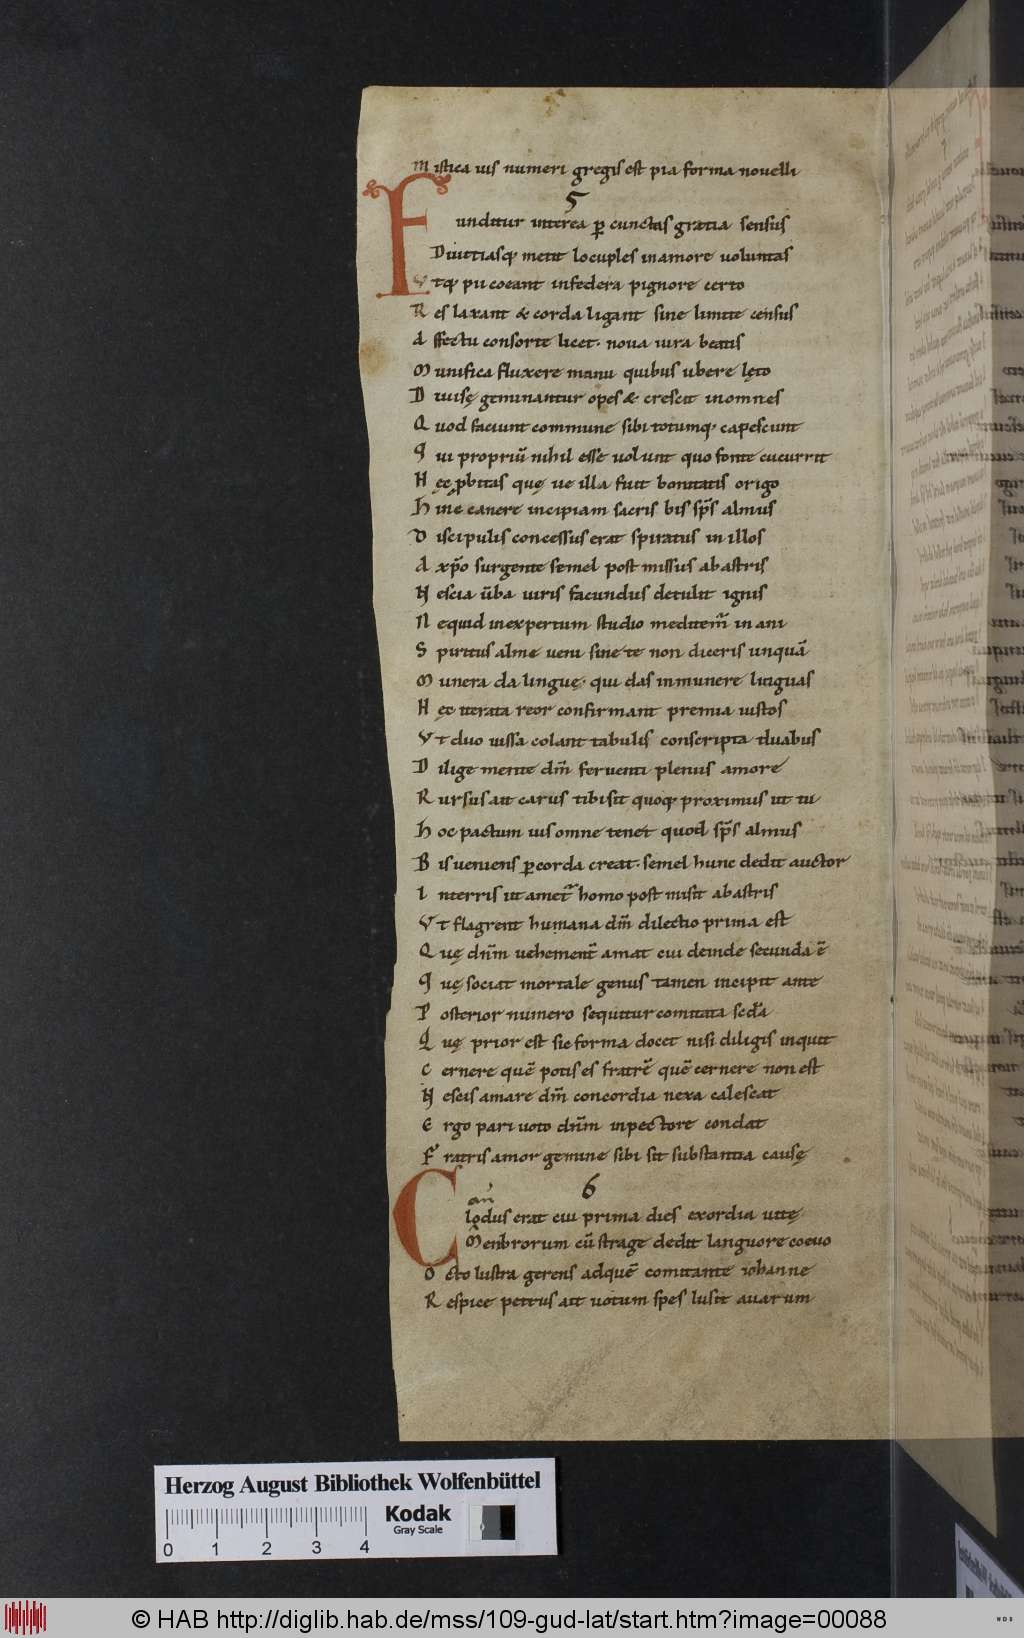 Mistica uis numeri gregis est pia forma nouelli
5
Funditur interea ꝑ cunctas gratia sensus
Diuitiasqꝫ metit locuples in amore uoluntas
Vtqꝫ pii coeant infedera pignore certo
Res laxant & corda ligant sine limite census
Affectu consorte licet· noua iura beatis
Munifica fluxere manu quibus ubere lęto
Diuisę geminantur opes & crescit in omnes
Quod faciunt commune sibi totumqꝫ capescunt
Qui propriū nihil esse uolunt quo fonte cucurrit
Hęc ꝓbitas quę ue illa fuit bonitatis origo
Hinc canere incipiam sacris bis sp̄s almus
Discipulis concessus erat spiratus in illos
A xp̄o surgente semel post missus ab astris
Nescia ūba uiris facundus detulit ignis
Ne quid inexpertum studio meditem̄ inani
Spiritus alme ueni sine te non diceris unquā
Munera da linguę· qui das in munere linguas
Hęc iterata reor confirmant premia iustos
Vt duo iussa colant tabulis conscripta duabus
Dilige mente dm̄ feruenti plenus amore
Rursus ait carus tibi sit quoqꝫ proximus ut tu
Hoc pactum uis omne tenet quod sp̄s almus
Bis ueniens ꝑ corda creat· semel hunc dedit auctor
In terris ut amet̄ homo post misit ab astris
Vt flagrent humana dm̄ dilectio prima est
Quę dn̄m uehement̄ amat cui deinde secunda ē
Quę sociat mortale genus tamen incipit ante
Posterior numero sequitur comitata scd̄a
Quę prior est sic forma docet nisi diligis inquit
Cernere quē potis es fratrē quē cernere non est
Nescis amare dm̄ concordia nexa calescat
Ergo pari uoto dn̄m inpectore condat
Fratris amor gemine sibi sit substantia causę
6
Clodus erat cui prima dies exordia uitę
Menbrorum cū strage dedit languore coeuo
Octo lustra gerens ad quē comitante iohanne
Respice petrus ait uotum spes lusit auarum
Herzog August Bibliothek Wolfenbüttel
Kodak
Gray Scale
0 1 2 3 4
© HAB http://diglib.hab.de/mss/109-gud-lat/start.htm?image=00088